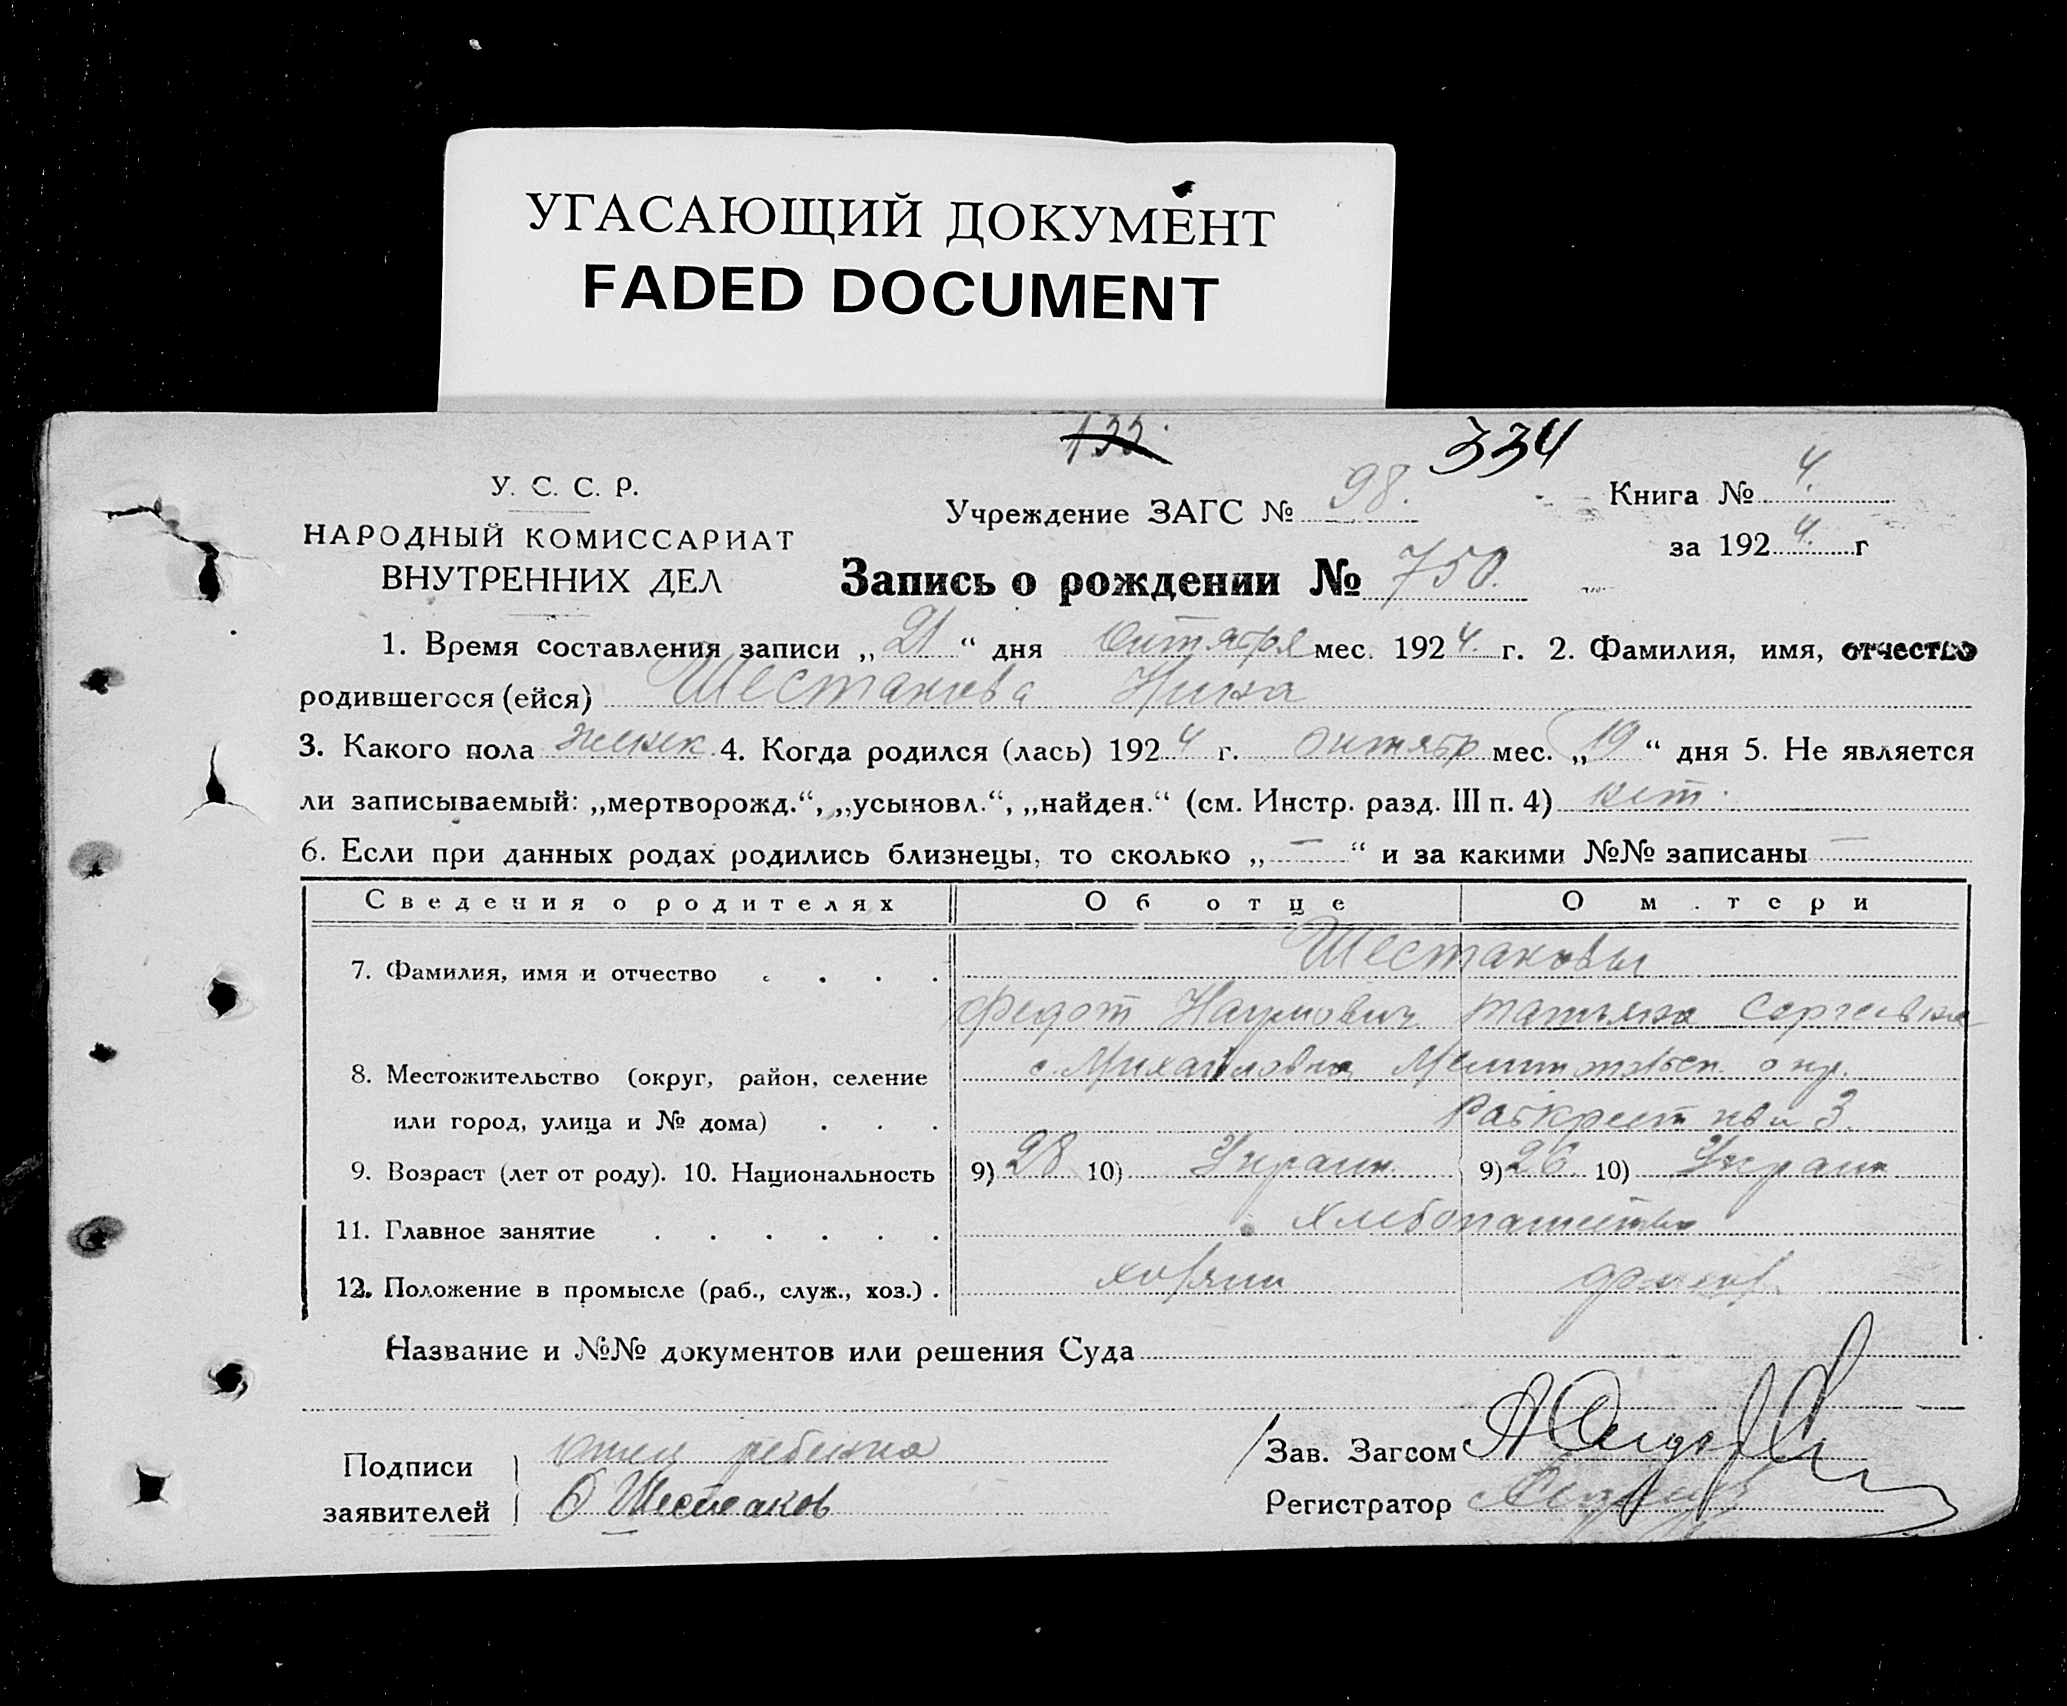 УГАСАЮЩИЙ ДОКУМЕНТ
FADED DOCUMENT
133.
334
У. С. С. Р.
НАРОДНЫЙ КОМИССАРИАТ
ВНУТРЕННИХ ДЕЛ
Учреждение ЗАГС № 98.
Книга № 4.
за 1924. г
Запись о рождении № 750.
1. Время составления записи „21“ дня Октября мес. 1924. г. 2. Фамилия, имя, отчество
родившегося (ейся) Шестакова Нина
3. Какого пола женск 4. Когда родился (лась) 1924 г. Октябр мес. „19“ дня 5. Не является
ли записываемый: „мертворожд.“, „усыновл.“, „найден.“ (см. Инстр. разд. III п. 4) нет.
6. Если при данных родах родились близнецы, то сколько „—“ и за какими №№ записаны —
Сведения о родителях Об отце О м.тери
Шестаковы
7. Фамилия, имя и отчество
Федот Наумович Татьяна Сергеевна
8. Местожительство (округ, район, селение с. Михайловка Мелитопольск. окр.
или город, улица и № дома) 3.
9. Возраст (лет от роду). 10. Национальность 9) 28 10) Украин. 9) 26 10) Украин
11. Главное занятие хлебопашество
12. Положение в промысле (раб., служ., хоз.) хозяин
Название и №№ документов или решения Суда
Подписи отец ребенка
заявителей Ф Шестаков
Зав. Загсом
Регистратор